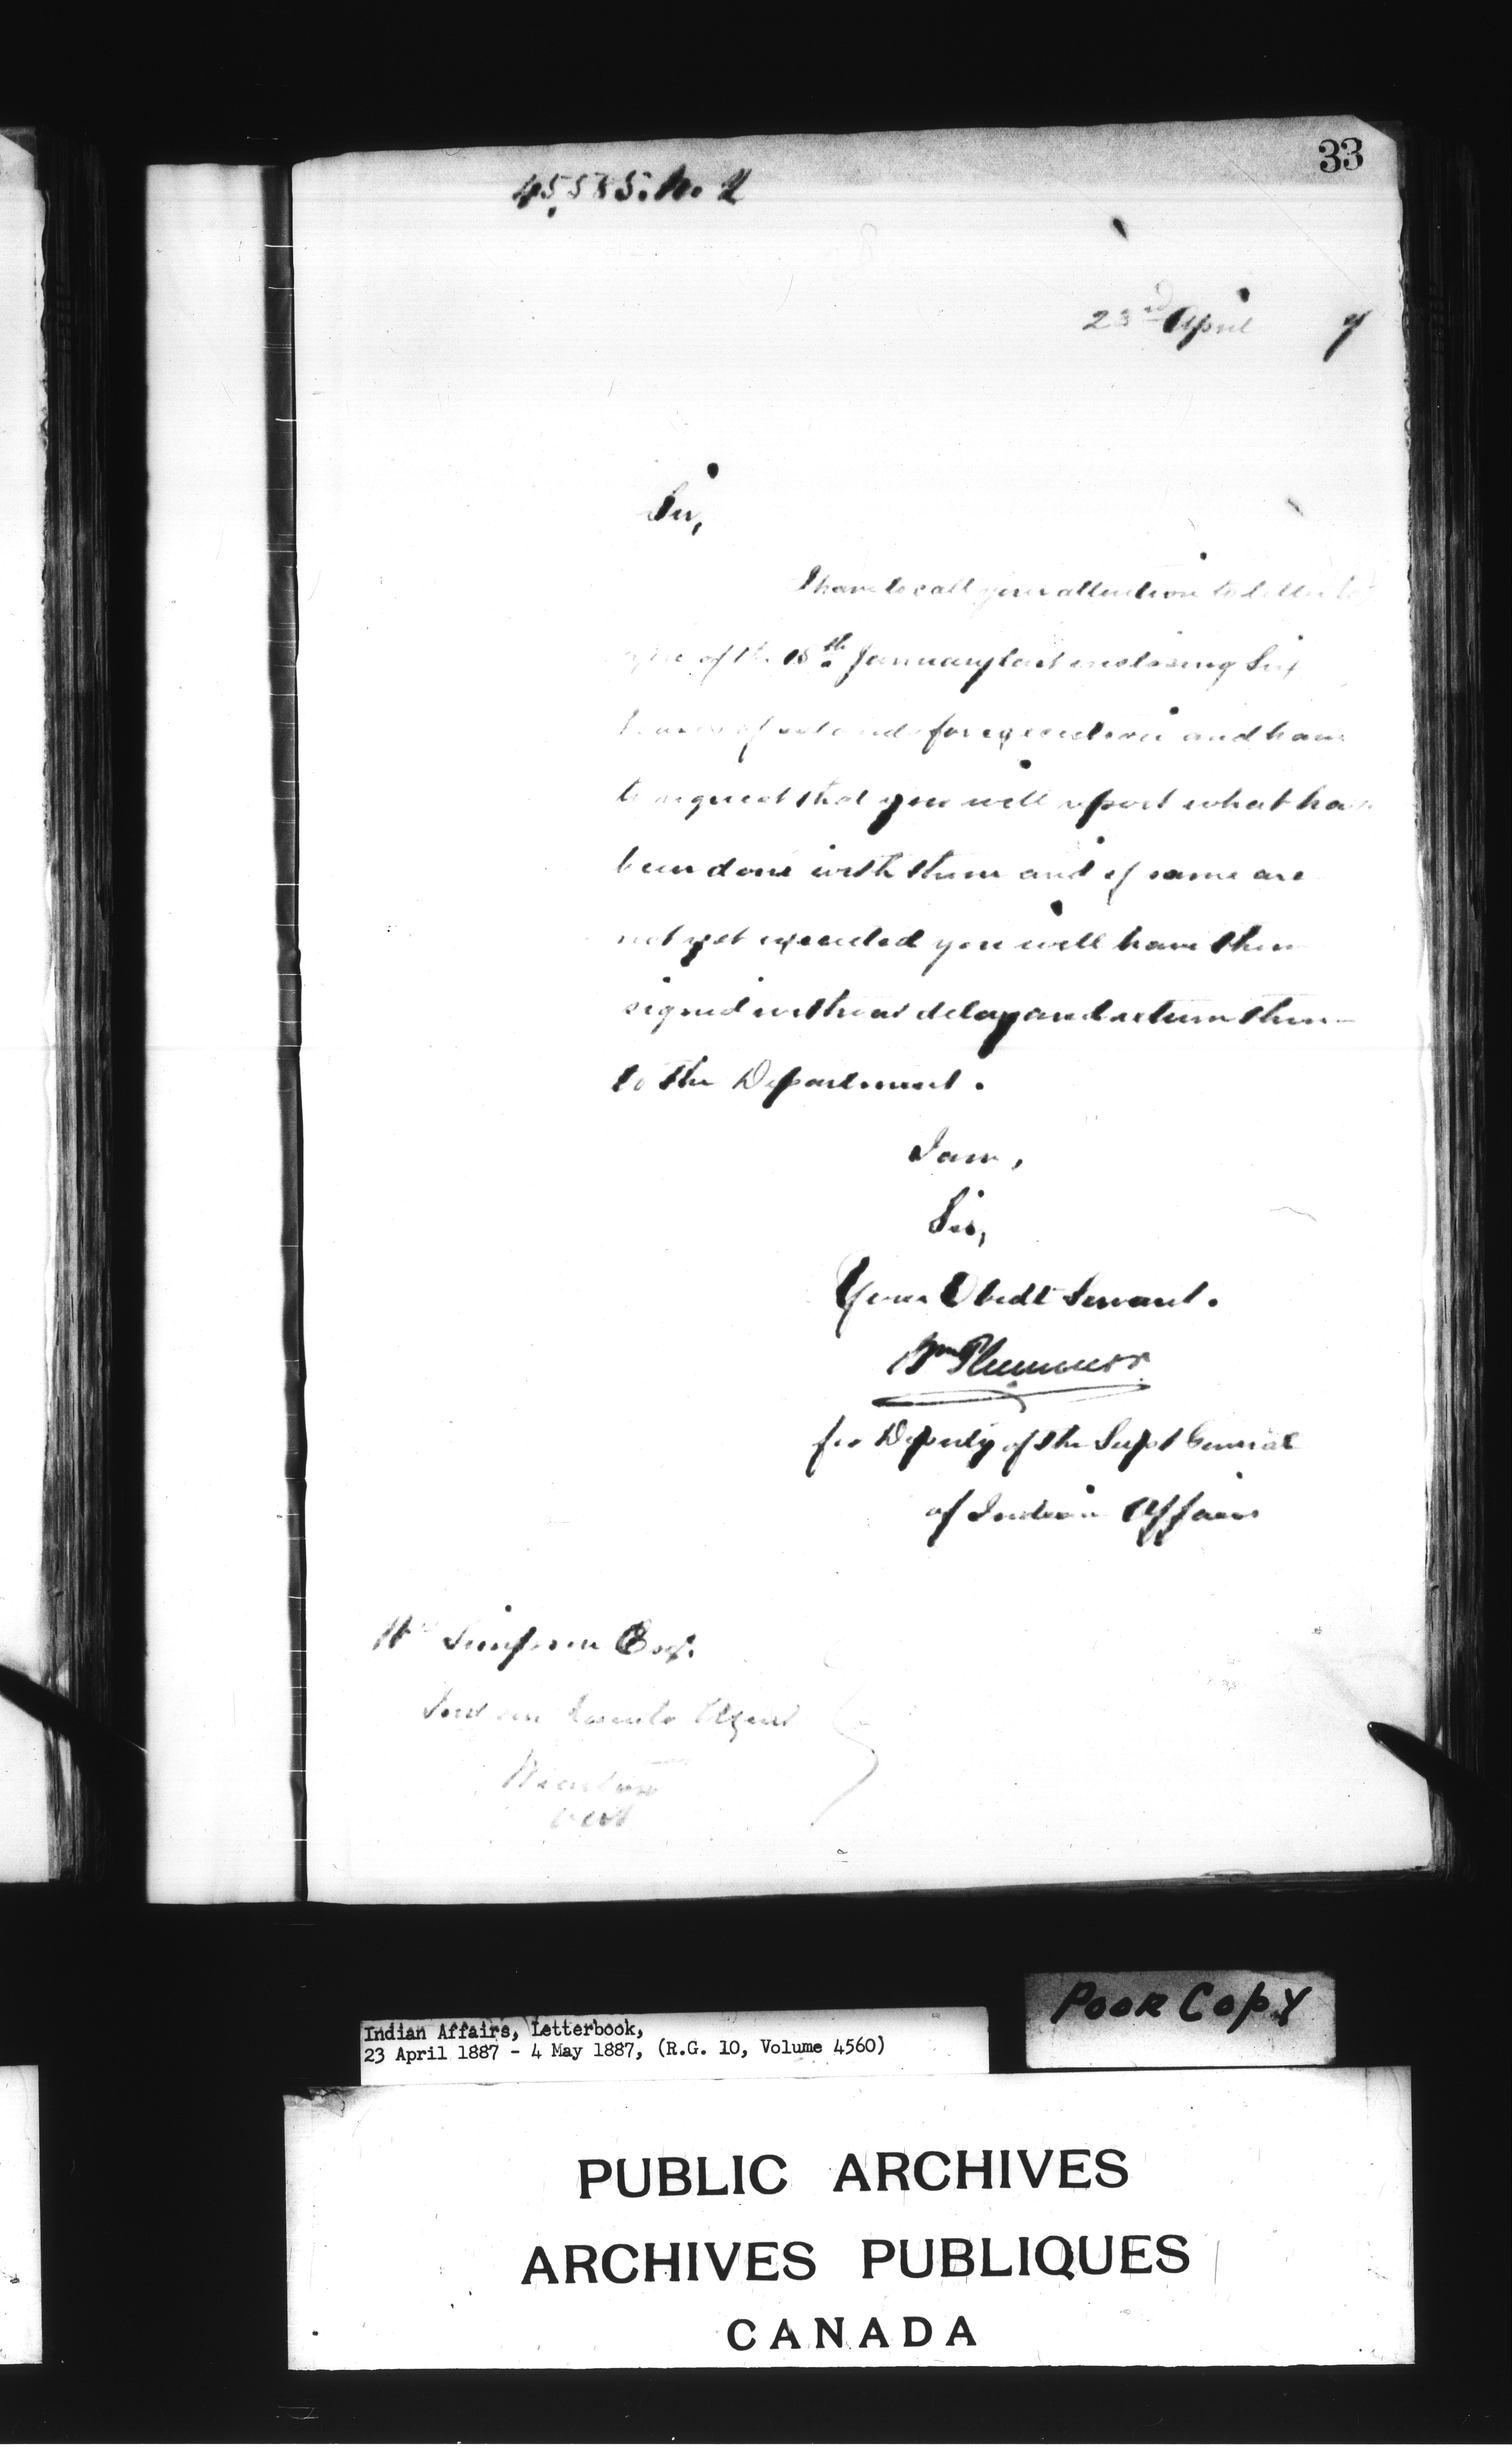 33
45,585. No. 2
23rd April 7
Sir,
I have to call your attention to letter
of the 15th January last enclosing Six
of Islands for execution and have
to request that you will report what has
been done with them and if same are
not yet executed you will have them
signed without delay and return them
to the Department.
I am,
Sir,
Your Obedt Servant.
Wm Plummer
for Deputy of the Supt General
of Indian Affairs
Wm Simpson Esq.
Indian Lands Agent
Wiarton
Ont
Poor Copy
Indian Affairs, Letterbook,
23 April 1887 - 4 May 1887, (R.G. 10, Volume 4560)
PUBLIC ARCHIVES
ARCHIVES PUBLIQUES
CANADA